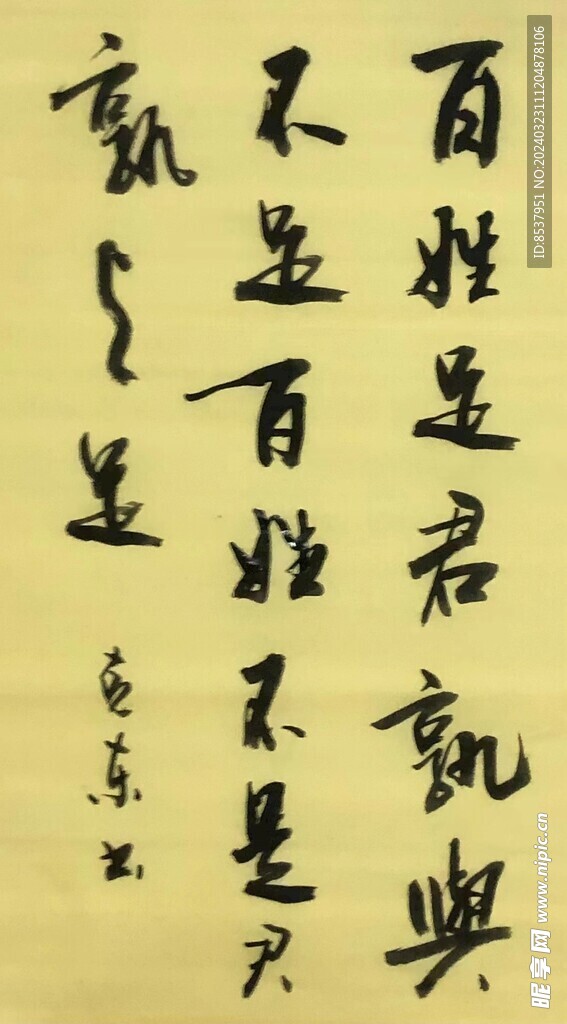 百姓足君孰與
不足百姓不足君
孰与足
东书
ID:8537951 NO:20240323111204878106
昵享网 www.nipic.cn